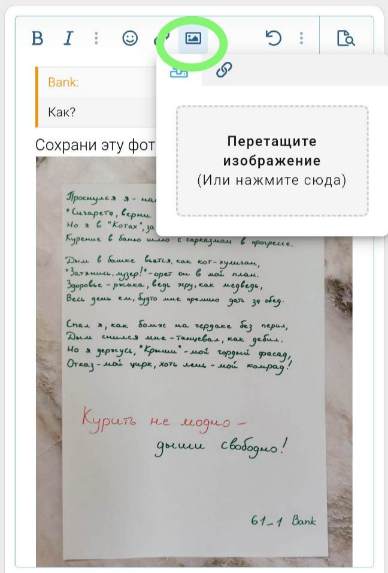 B I
Bank:
Как?
Сохрани эту фот
Перетащите
изображение
(Или нажмите сюда)
Проснулся я -
"Сигарета, верни
Но я в "Котах", за
Курение в баню шло с сарказмом в прогрессе.
Дым в башке вьётся, как кот-хулиган,
"Затянись, лузер!"-орёт он в мой план.
Здоровье - ржака, ведь жру, как медведь,
Весь день ем, будто мне премию дать за обед.
Спал я, как бомж на чердаке без перил,
Дым снился мне - танцевал, как дебил.
Но я держусь, "Крыши"-мой гордый фасад,
Отказ-мой цирк, хоть лещ-мой комрад!
Курить не модно -
дыши свободно!
61_1 Bank